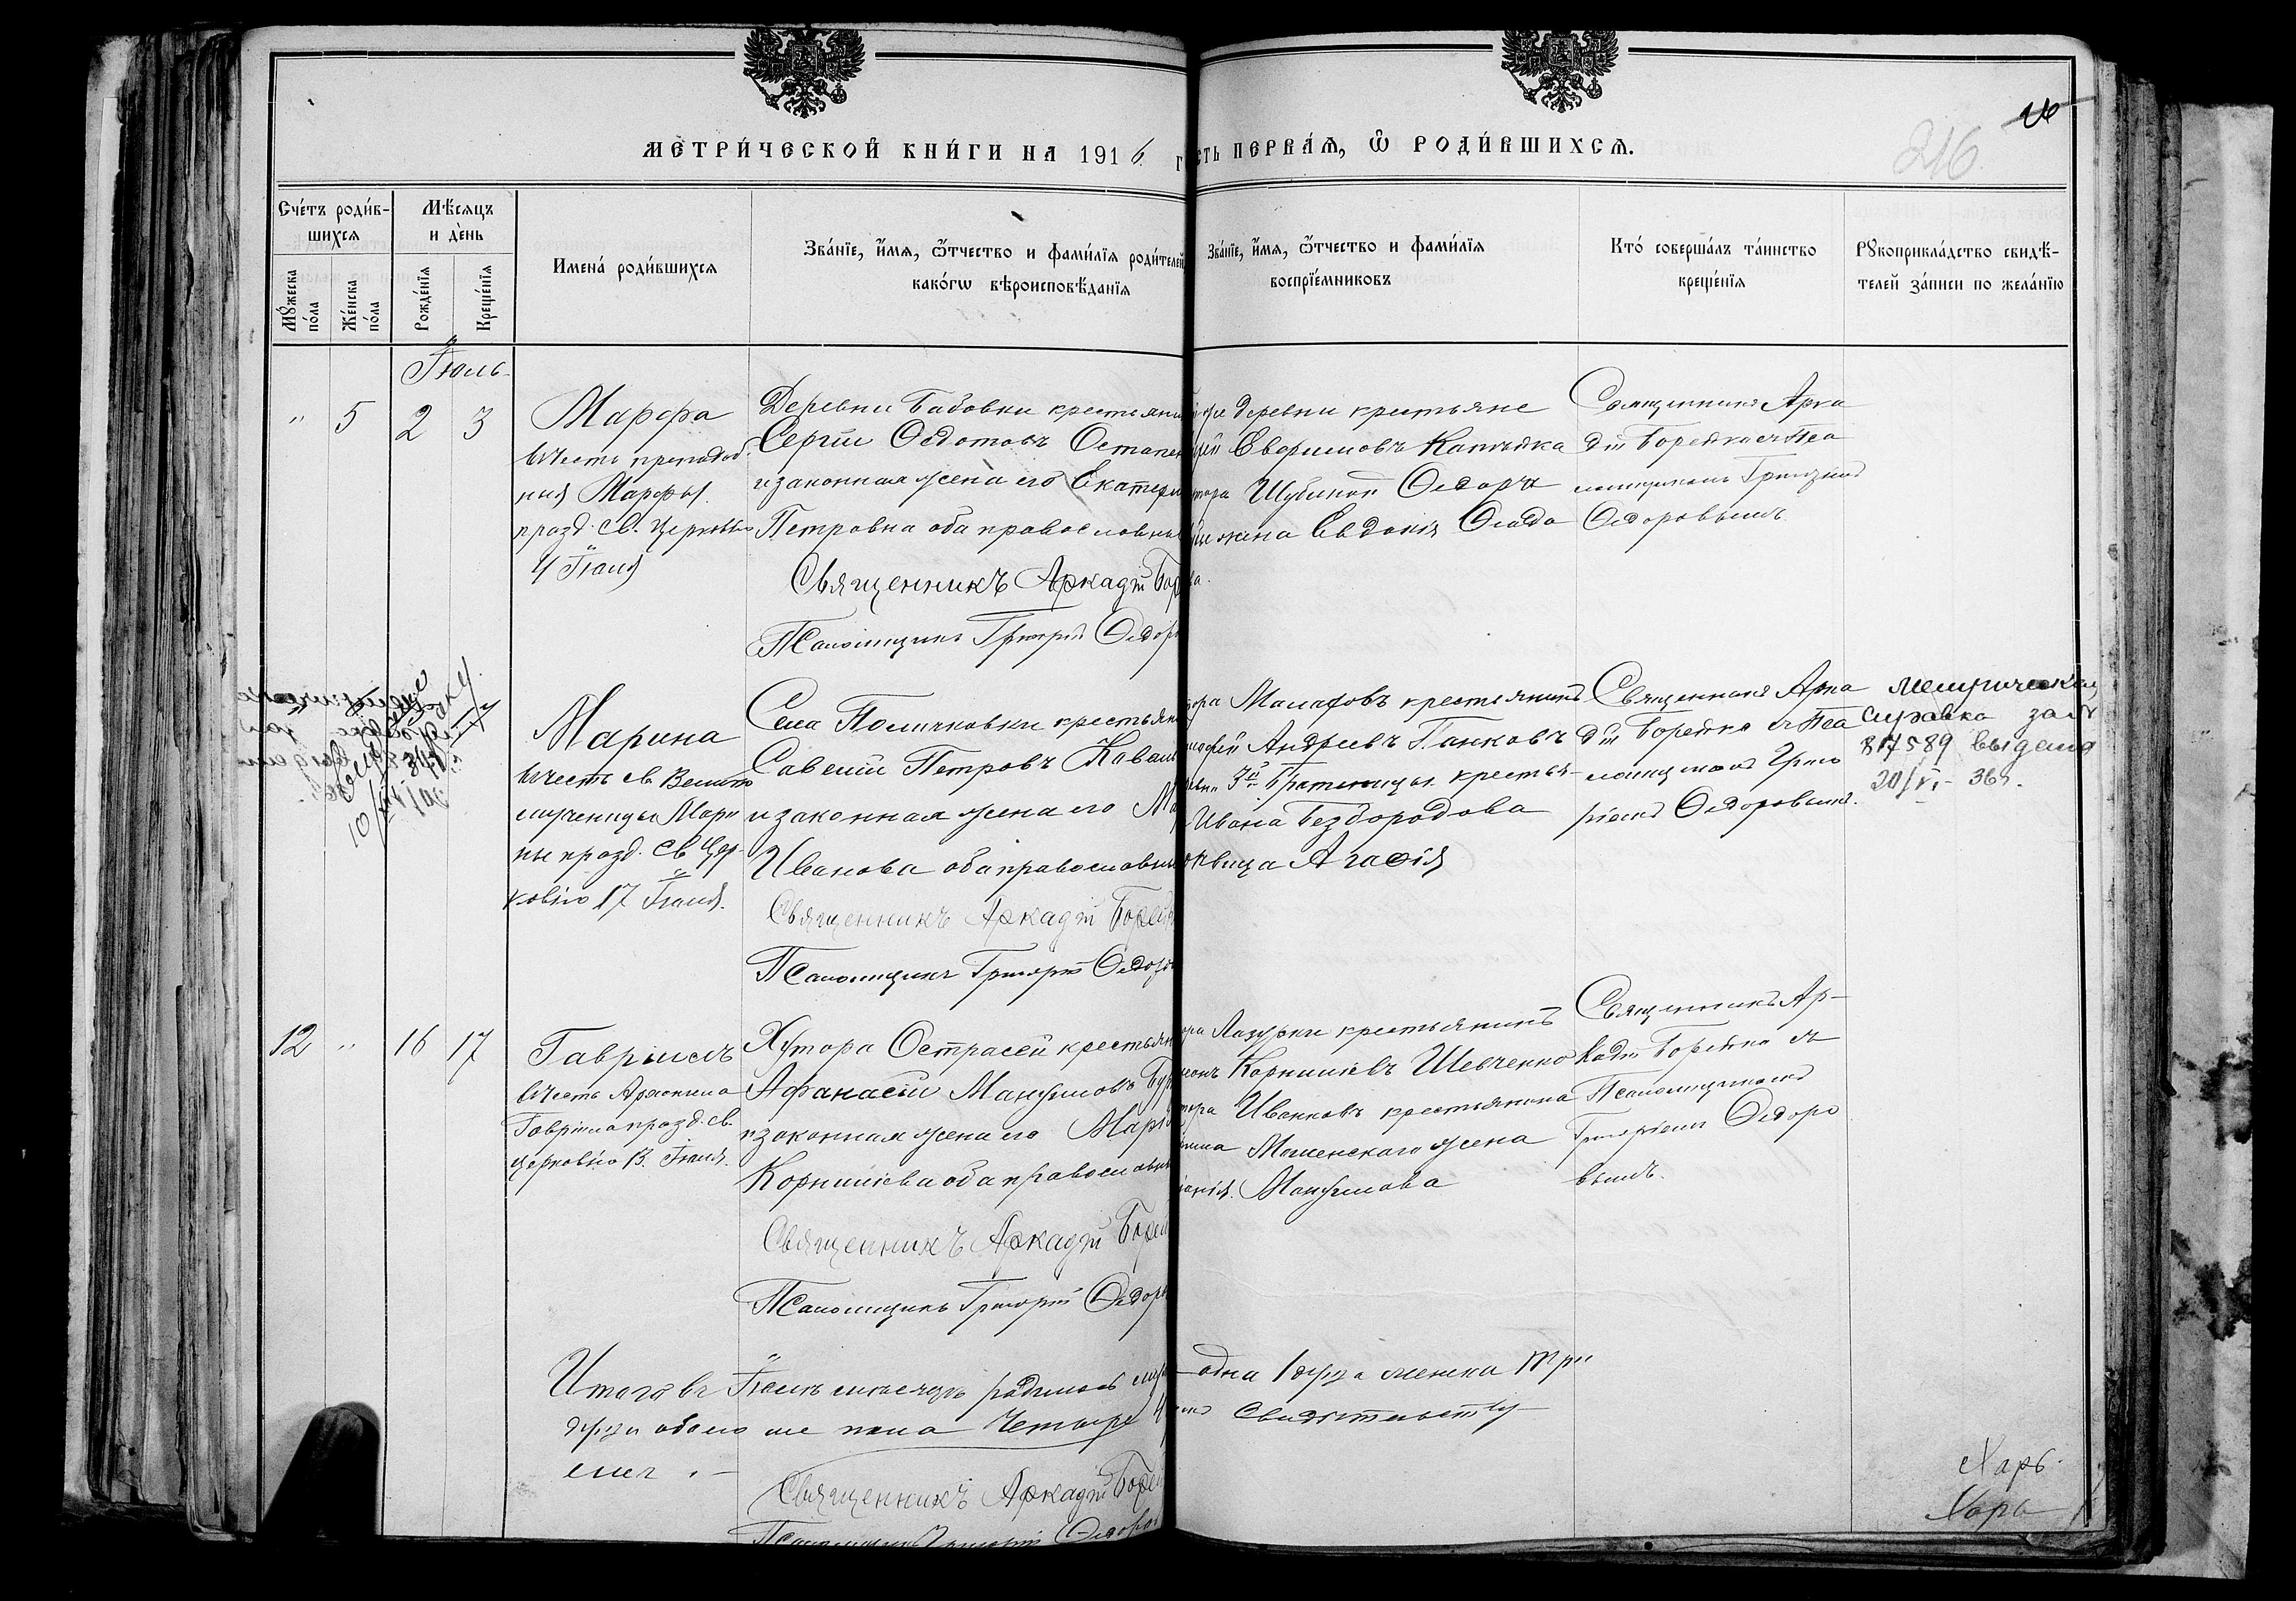 МЕТРИ́ЧЕСКОЙ КНИ́ГИ НА 1916 г
сть ПЕРВАѦ, Ѽ РОДИ́ВШИХСѦ.
26
216
Сче́тъ роди́в-
шихсѧ
Мꙋ́жеска по́ла
Же́нска по́ла
Мѣ́сѧцъ
и де́нь
Рожде́нїѧ
Креще́нїѧ
Имена́ роди́вшихсѧ
Зва́нїе, и́мѧ, ѻ҆́тчество и фами́лїѧ роди́телей
како́гѡ вѣроисповѣ́данїѧ
Зва́нїе, и́мѧ, ѻ҆́тчество и фами́лїѧ
воспрїе́мниковъ
Кто́ соверша́лъ та́инство
креще́нїѧ
Рꙋкоприкла́дство свидѣ́-
телей за́писи по жела́нїю
Іюль
" 5 2 3
Марфа
въ честь преподоб
ныя Марфы.
празд. св. церковью
4 Іюля
Деревни Бабовки крестьяни
Сергій Ѳедотовъ Остапен
и законная жена его Екатери
Петровна оба православны
Священникъ Аркадій Бор
Псаломщикъ Григорій Ѳедор
же деревни крестьяне
Евфимовъ
Шубиной Ѳедора
жена Евдокія
Священникъ Арка
дій Борейко съ Пса
ломщикомъ Григоріемъ
Ѳедоровымъ
Марина
въ честь св. Велико
мученицы Мари
ны празд. св. Цер
ковію 17 Іюля.
Села Поличковки крестьян
Савелій Петровъ Ковал
и законная жена его Ма
Иванова оба православны
Священникъ Аркадій Борей
Псаломщикъ Григорій Ѳедоро
ора крестьянинъ
Андреевъ Панковъ
крестья-
Ивана Бездородова
Агафія
Священникъ Арка
дій Борейко съ Пса
ломщикомъ Григо
ріемъ Ѳедоровымъ.
Метрическая
справка за №
817589 выдана
20/VI - 36г.
12 " 16 17
Гавріилъ
въ честь Архангела
Гавріила празд. св.
церковью 13. Іюля.
Хутора Острасей крестьян
Афанасій Мануиловъ Бур
и законная жена его Марі
Корниліева оба православны
Священникъ Аркадій Борей
Псаломщикъ Григорій Ѳедоро
ора Лазурки крестьянинъ
Корниліевъ Шевченко
тора Иванковъ крестьянина
Моженскаго жена
Мануилова
Священникъ Ар-
кадій Борейко съ
Псаломщикомъ
Григоріемъ Ѳедоро
вымъ.
Итого въ Іюлѣ мѣсяцѣ родилось муж
одна 1 душа женска три
души обоего же пола четыре 4
свидѣтельству
емъ . —
Священникъ Аркадій Борей
Псаломщикъ Григорій Ѳедоров
Харь
Харь